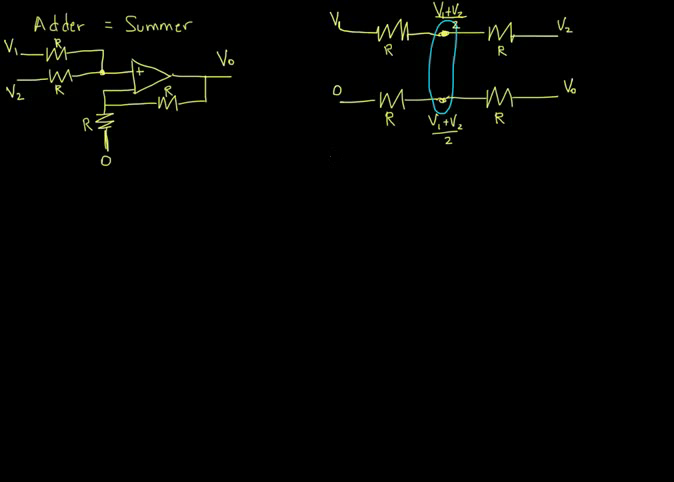 Adder = Summer
V₁ R
V₂ R
+
R
V₀
R
0
V₁ R (V₁+V₂)/2 R V₂
0 R (V₁+V₂)/2 R V₀